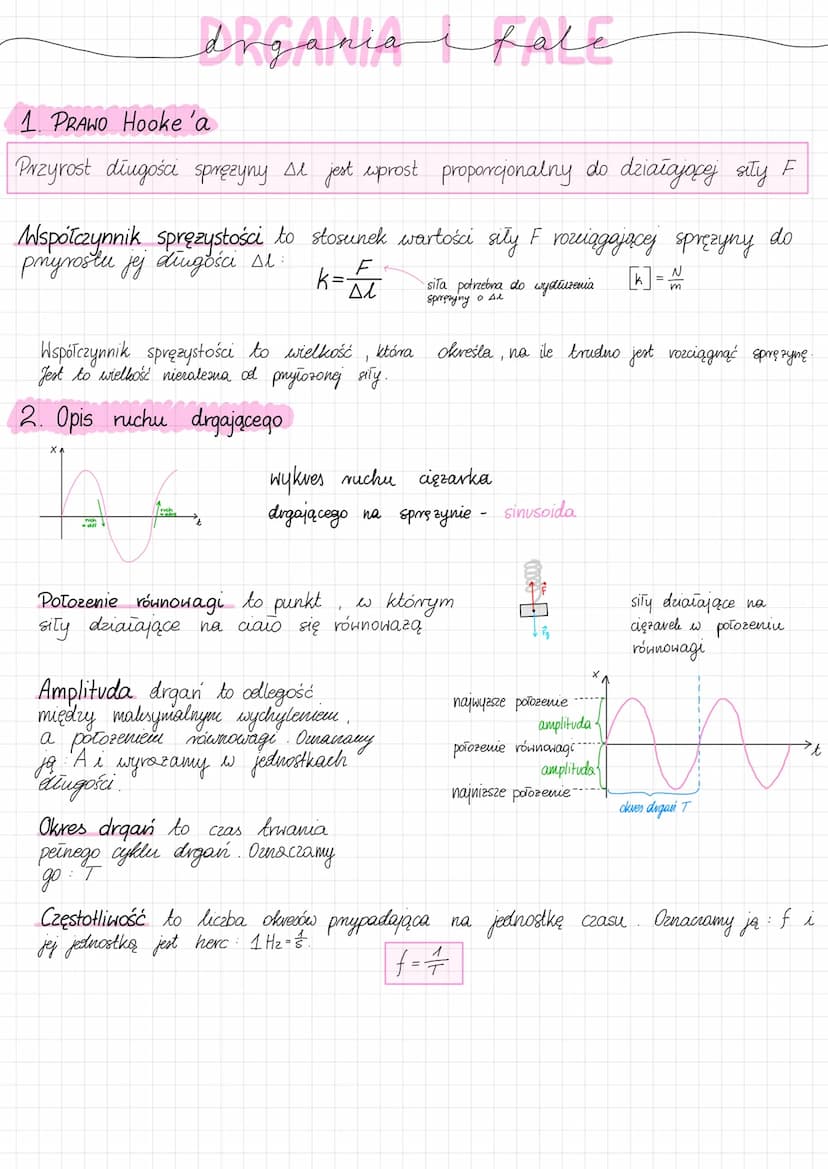 DRGANIA I FALE
drgania i fale
1. PRAWO Hooke'a
Przyrost długości sprężyny Δl jest wprost proporcjonalny do działającej siły F
Współczynnik sprężystości to stosunek wartości siły F rozciągającej sprężynę do
przyrostu jej długości Δl:
k = F/Δl
siła potrzebna do wydłużenia
sprężyny o Δl
[k] = N/m
Współczynnik sprężystości to wielkość, która określa, na ile trudno jest rozciągnąć sprężynę.
Jest to wielkość niezależna od przyłożonej siły.
2. Opis ruchu drgającego
x
t
wykres ruchu ciężarka
drgającego na sprężynie - sinusoida
Położenie równowagi to punkt, w którym
siły działające na ciało się równoważą
F
Fg
siły działające na
ciężarek w położeniu
równowagi
Amplituda drgań to odległość
między maksymalnym wychyleniem,
a położeniem równowagi. Oznaczamy
ją: A i wyrażamy w jednostkach
długości.
x
najwyższe położenie
amplituda
położenie równowagi
t
amplituda
najniższe położenie
okres drgań T
Okres drgań to czas trwania
pełnego cyklu drgań. Oznaczamy
go: T
Częstotliwość to liczba okresów przypadająca na jednostkę czasu. Oznaczamy ją: f i
jej jednostką jest herc: 1 Hz = 1/s.
f = 1/T